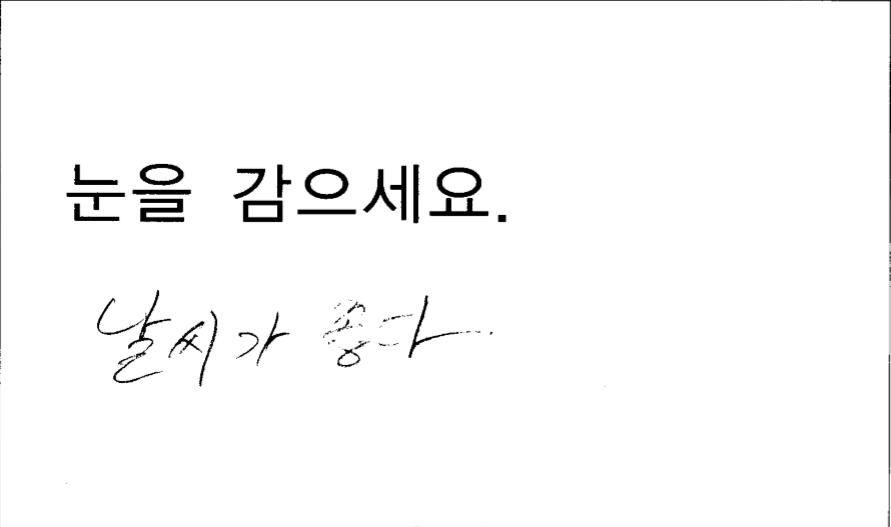 눈을 감으세요.
날씨가 좋다.